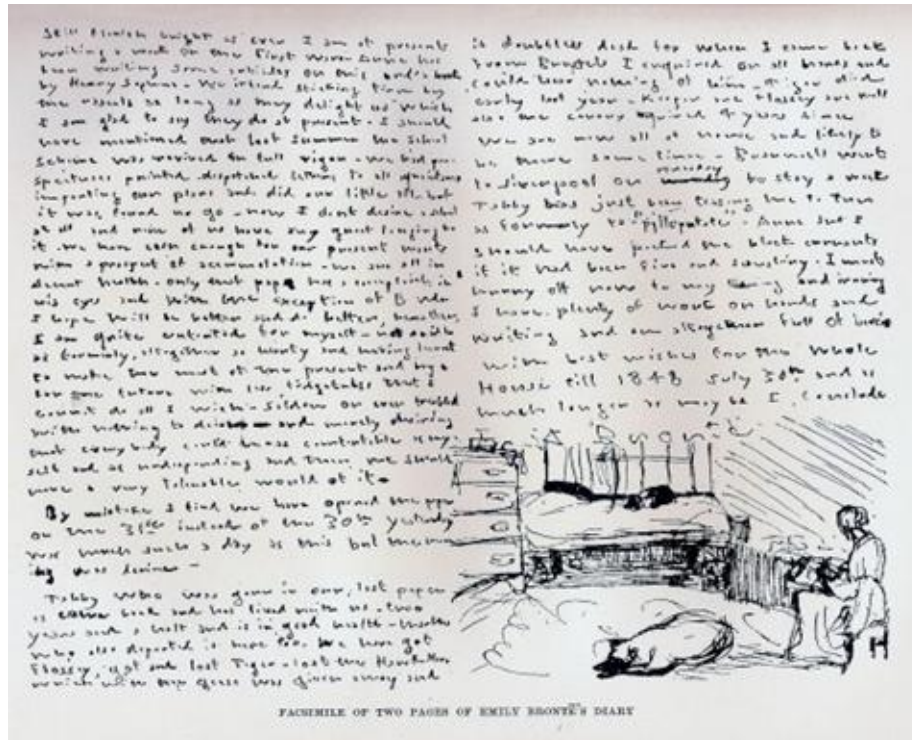 still flourish bright as ever I am at present
writing a work on the First Wars Anne has
been writing some articles on this and a book
by Henry Sophona - We intend sticking firm by
the rascals as long as they delight us which
I am glad to say they do at present - I should
have mentioned that last summer the school
scheme was revived in full vigor - We had pro-
spectuses printed, despatched letters to all
imparting our plans and did our little all - but
it was found no go - now I dont desire a school
at all and none of us have any great longing for
it. We have cash enough for our present wants
with a prospect of accumulation - we are all in
decent health - only that papa has a complaint in
his eyes and with the exception of B who
I hope will be better and do better, hereafter.
I am quite contented for myself - not as idle
as formerly, altogether as hearty and having learnt
to make the most of the present and
for the future with less fidgetiness that I
cannot do all I wish - seldom or ever troubled
with nothing to do and merely desiring
that everybody could be as comfortable as my
self and as undesponding and then we should
have a very tolerable world of it -
By mistake I find we have opened the paper
on the 31st instead of the 30th yesterday
was much such a day as this but the morn
ing was divine -
Tabby who was gone in our last paper
is come back and has lived with us - two
years and a half and is in good health - Martha
who also departed is here too. We have got
Flossey, got and lost Tiger - lost the Hawk
which with the geese was given away and
is doubtless dead for when I came back
from Brussels I enquired on all hands and
could hear nothing of him - Tiger died
early last year - Keeper and Flossey are well
also the canary acquired 4 years since
We are now all at home and likely to
be there some time - Branwell went
to Liverpool on Tuesday to stay a week
Tabby has just been teasing me to turn
as formerly to - "pilloputate". Anne and I
should have picked the black currants
if it had been fine and sunshiny. I must
hurry off now to my turning and ironing
I have plenty of work on hands and
writing and am altogether full of business
with best wishes for the whole
House till 1848 July 30th and as
much longer as may be I conclude
E J Brontë
FACSIMILE OF TWO PAGES OF EMILY BRONTË'S DIARY